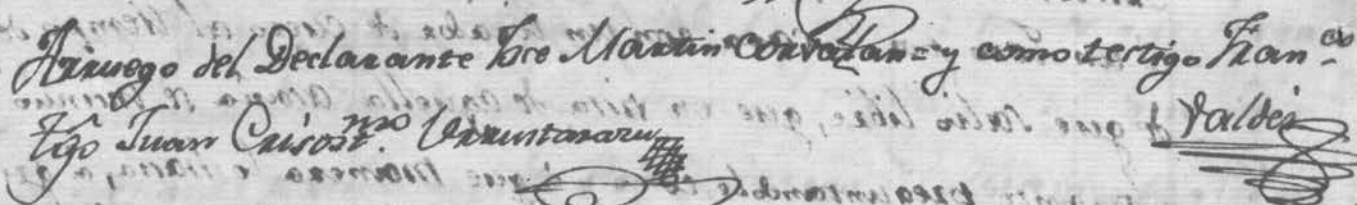 Arruego del Declarante Jose Martin Corvalan = y como testigo Fran.co
Valdés
Tgo Juan Crisost.mo Urruntararu